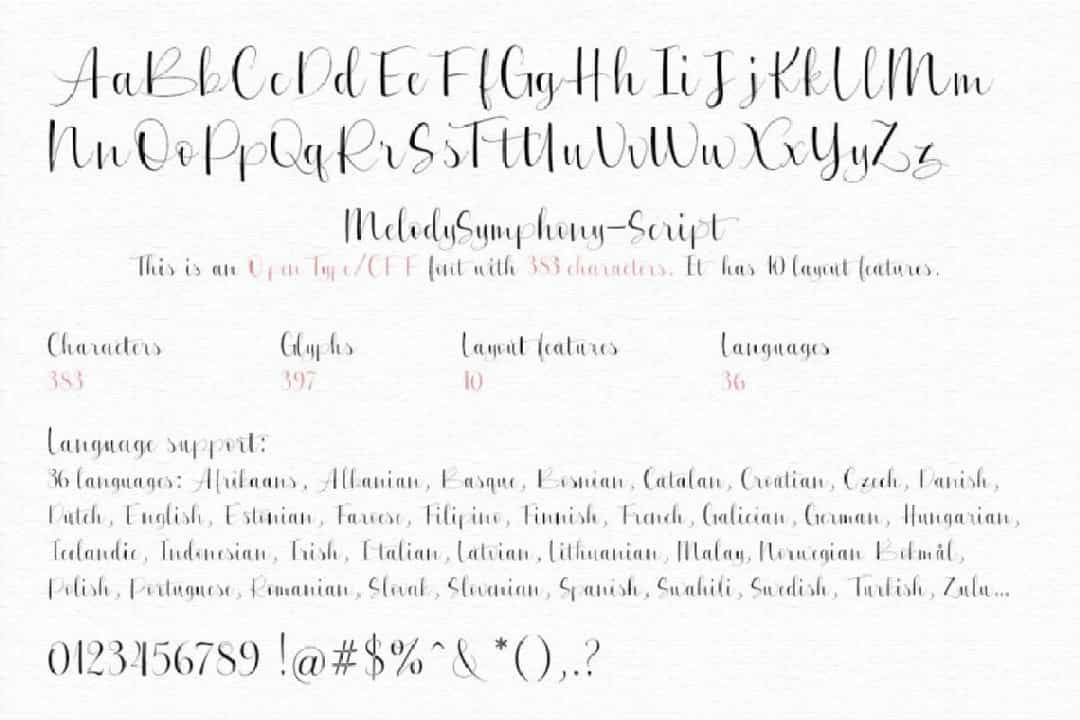 AaBbCcDdEeFfGgHhIiJjKkLlMm
NnOoPpQqRrSsTtUuVvWwXxYyZz
MelodySymphony-Script
This is an OpenType/CFF font with 383 characters. It has 10 layout features.
Characters Glyphs Layout features Languages
383 397 10 36
Language support:
36 languages: Afrikaans, Albanian, Basque, Bosnian, Catalan, Croatian, Czech, Danish,
Dutch, English, Estonian, Faroese, Filipino, Finnish, French, Galician, German, Hungarian,
Icelandic, Indonesian, Irish, Italian, Latvian, Lithuanian, Malay, Norwegian Bokmål,
Polish, Portuguese, Romanian, Slovak, Slovenian, Spanish, Swahili, Swedish, Turkish, Zulu...
0123456789 !@#$%^& *(),.?